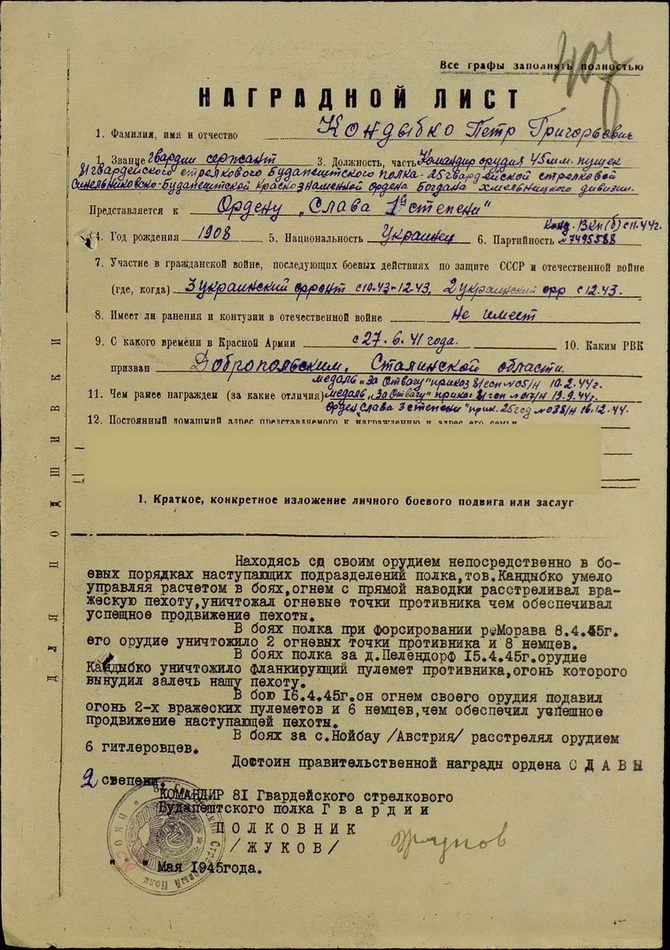 407
Все графы заполнять полностью
НАГРАДНОЙ ЛИСТ
1. Фамилия, имя и отчество Кондыбко Петр Григорьевич
1. Звание гвардии сержант 3. Должность, часть Командир орудия 45мм. пушек
81 гвардейского стрелкового Будапештского полка - 25 гвардейской стрелковой
Синельниковско-Будапештской Краснознаменной ордена Богдана Хмельницкого дивизии.
Представляется к Ордену „Слава 1й степени"
Канд. ВКП(б) с 11.44г.
4. Год рождения 1908 5. Национальность Украинец 6. Партийность №7495588
7. Участие в гражданской войне, последующих боевых действиях по защите СССР и отечественной войне
(где, когда) 3 Украинский фронт с 10.43-12.43, 2 Украинский фр с 12.43.
8. Имеет ли ранения и контузии в отечественной войне Не имеет
9. С какого времени в Красной Армии с 27.6.41 года. 10. Каким РВК
призван Добропольским, Сталинской области
медаль „За Отвагу" приказ 81гсп №05/н 10.2.44г.
11. Чем ранее награжден (за какие отличия) медаль „За Отвагу" приказ 81гсп №017/н 19.9.44г.
орден Слава 3 степени" прик. 25гсд №038/н 16.12.44.
12. Постоянный домашний адрес представляемого к награждению и адрес его семьи
1. Краткое, конкретное изложение личного боевого подвига или заслуг
ДЛЯ ПОДШИВКИ
Находясь со своим орудием непосредственно в бо-
евых порядках наступающих подразделений полка,тов.Кандыбко умело
управляя расчетом в боях,огнем с прямой наводки расстреливал вра-
жескую пехоту,уничтожал огневые точки противника чем обеспечивал
успещное продвижение пехоты.
В боях полка при форсировании р.Морава 8.4.45г.
его орудие уничтожило 2 огневых точки противника и 8 немцев.
В боях полка за д.Пелендорф 15.4.45г.орудие
Кандыбко уничтожило фланкирующий пулемет противника,огонь которого
вынудил залечь нашу пехоту.
В бою 16.4.45г.он огнем своего орудия подавил
огонь 2-х вражеских пулеметов и 6 немцев,чем обеспечил успешное
продвижение наступающей пехоты.
В боях за с.Нойбау /Австрия/ расстрелял орудием
6 гитлеровцев.
Достоин правительственной награды ордена СЛАВЫ
2 степени.
КОМАНДИР 81 Гвардейского стрелкового
Будапештского полка Гвардии
ПОЛКОВНИК
/ЖУКОВ/ Жуков
" " Мая 1945года.